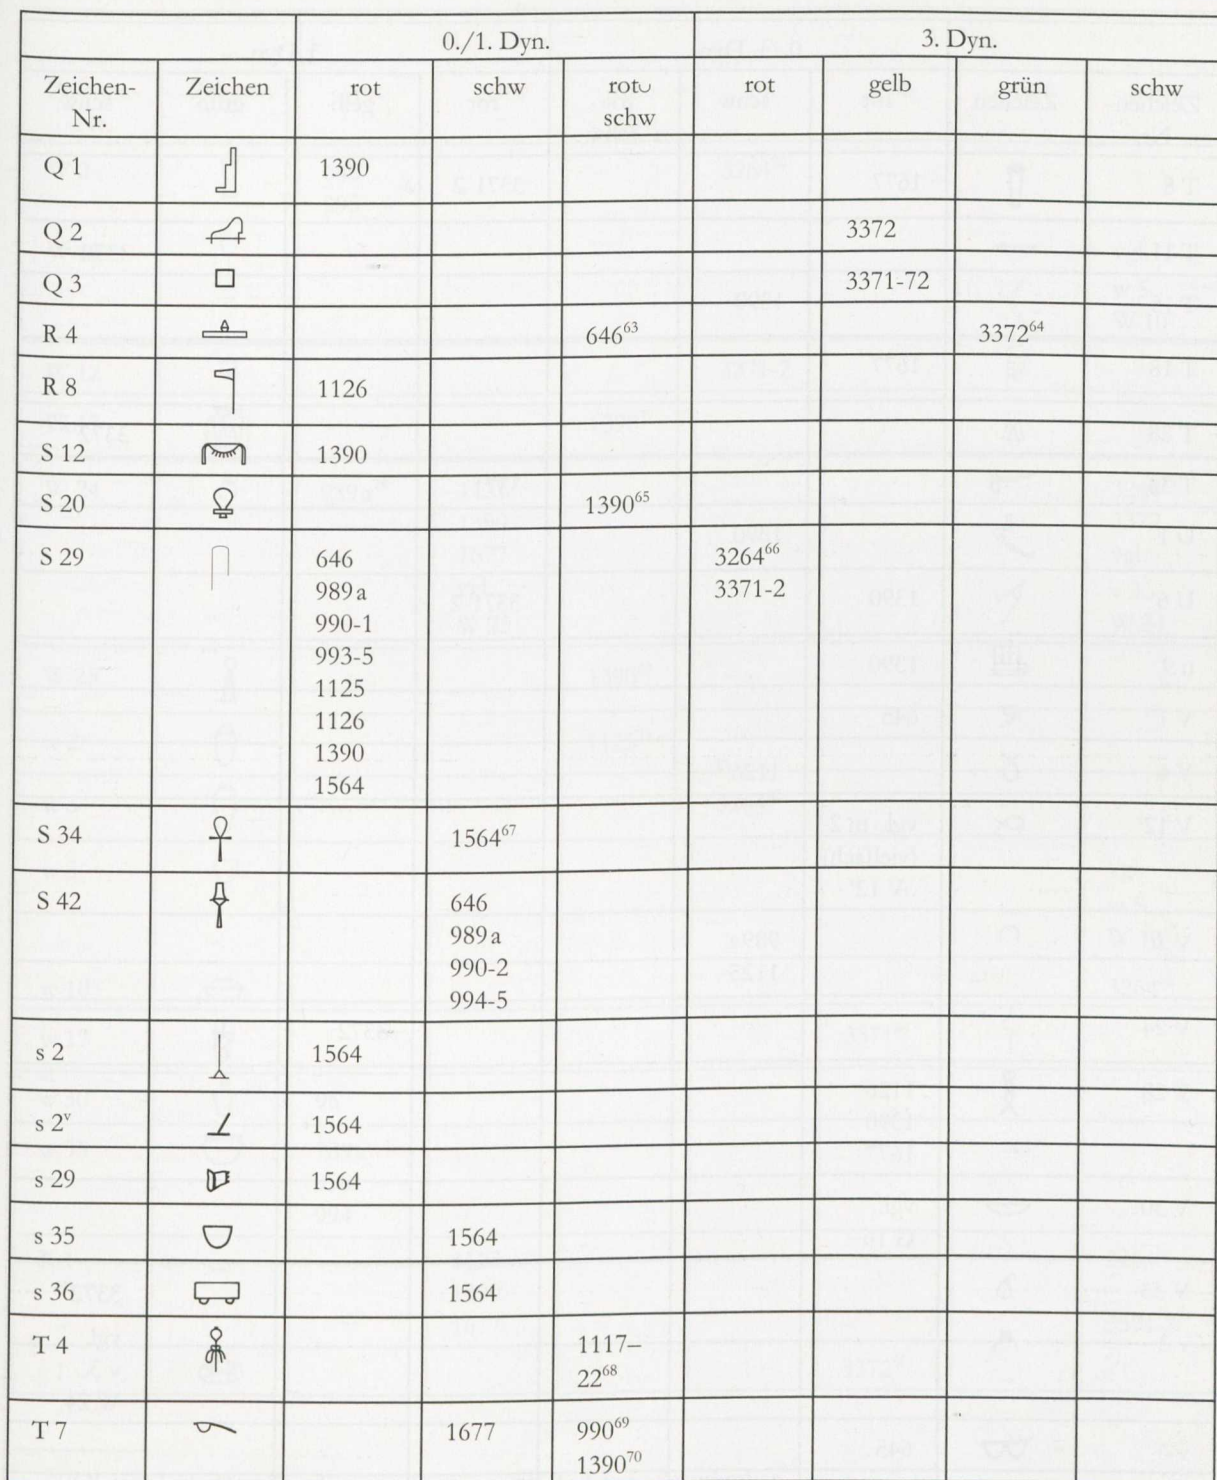 0./1. Dyn. 3. Dyn.
Zeichen- Zeichen rot schw rot∪ rot gelb grün schw
Nr. schw
Q 1 1390
Q 2 3372
Q 3 3371-72
R 4 646⁶³ 3372⁶⁴
R 8 1126
S 12 1390
S 20 1390⁶⁵
S 29 646 3264⁶⁶
989a 3371-2
990-1
993-5
1125
1126
1390
1564
S 34 1564⁶⁷
S 42 646
989a
990-2
994-5
s 2 1564
s 2ᵛ 1564
s 29 1564
s 35 1564
s 36 1564
T 4 1117–
22⁶⁸
T 7 1677 990⁶⁹
1390⁷⁰